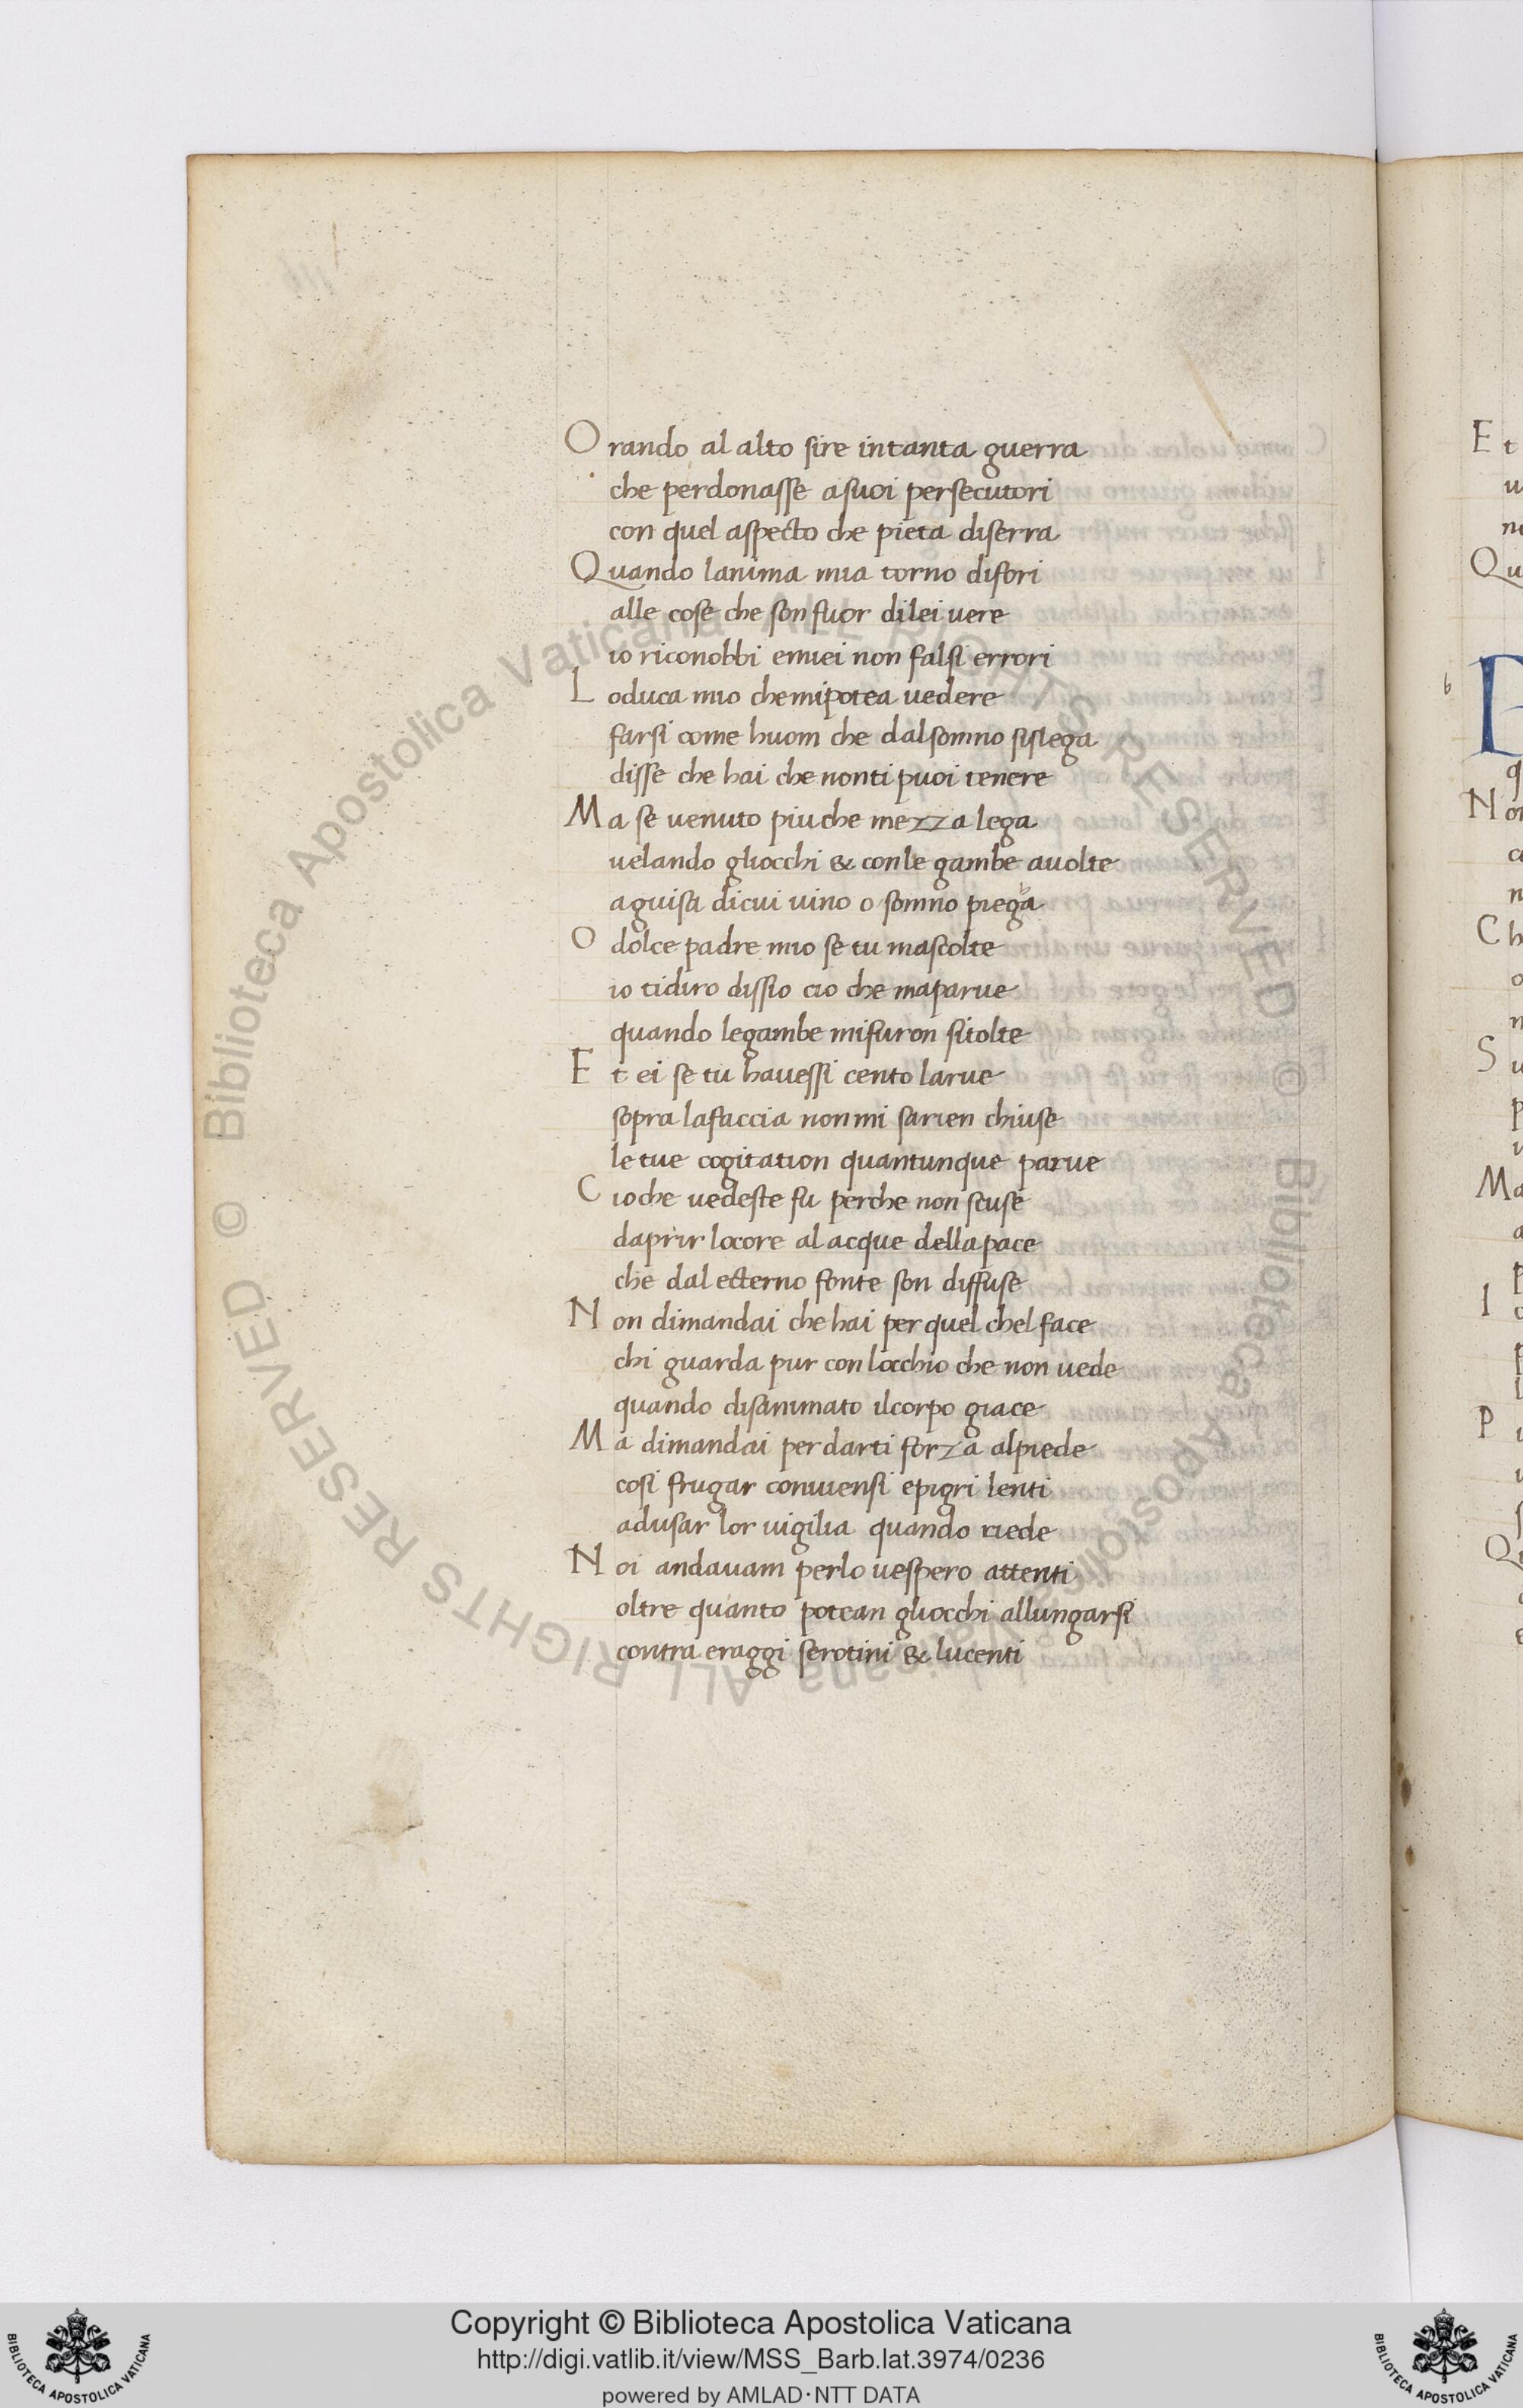 Orando al alto sire intanta guerra
che perdonasse asuoi persecutori
con quel aspecto che pieta diserra
Quando lanima mia torno difori
alle cose che son fuor dilei uere
io riconobbi emiei non falsi errori
Loduca mio chemipotea uedere
farsi come huom che dalsomno sislega
disse che hai che nonti puoi tenere
Ma se uenuto piuche mezza lega
uelando gliocchi & conle gambe auolte
aguisa dicui uino o somno piega
O dolce padre mio se tu mascolte
io tidiro dissio cio che maparue
quando legambe mifuron sitolte
Et ei se tu hauessi cento larue
sopra lafaccia nonmi sarien chiuse
letue cogitation quantunque parue
Cioche uedeste fu perche non scuse
daprir locore al acque dellapace
che dal etterno fonte son diffuse
Non dimandai che hai per quel chel face
chi guarda pur con locchio che non uede
quando disanimato ilcorpo giace
Ma dimandai perdarti forza alpiede
cosi frugar conuiensi epigri lenti
adusar lor uigilia quando riede
Noi andauam perlo uespero attenti
oltre quanto potean gliocchi allungarsi
contra eraggi serotini & lucenti
Et
Qu
b
Non
Ch
Su
Ma
P
Copyright © Biblioteca Apostolica Vaticana
http://digi.vatlib.it/view/MSS_Barb.lat.3974/0236
powered by AMLAD·NTT DATA
BIBLIOTECA APOSTOLICA VATICANA
BIBLIOTECA APOSTOLICA VATICANA
© Biblioteca Apostolica Vaticana ALL RIGHTS RESERVED
© Biblioteca Apostolica Vaticana ALL RIGHTS RESERVED